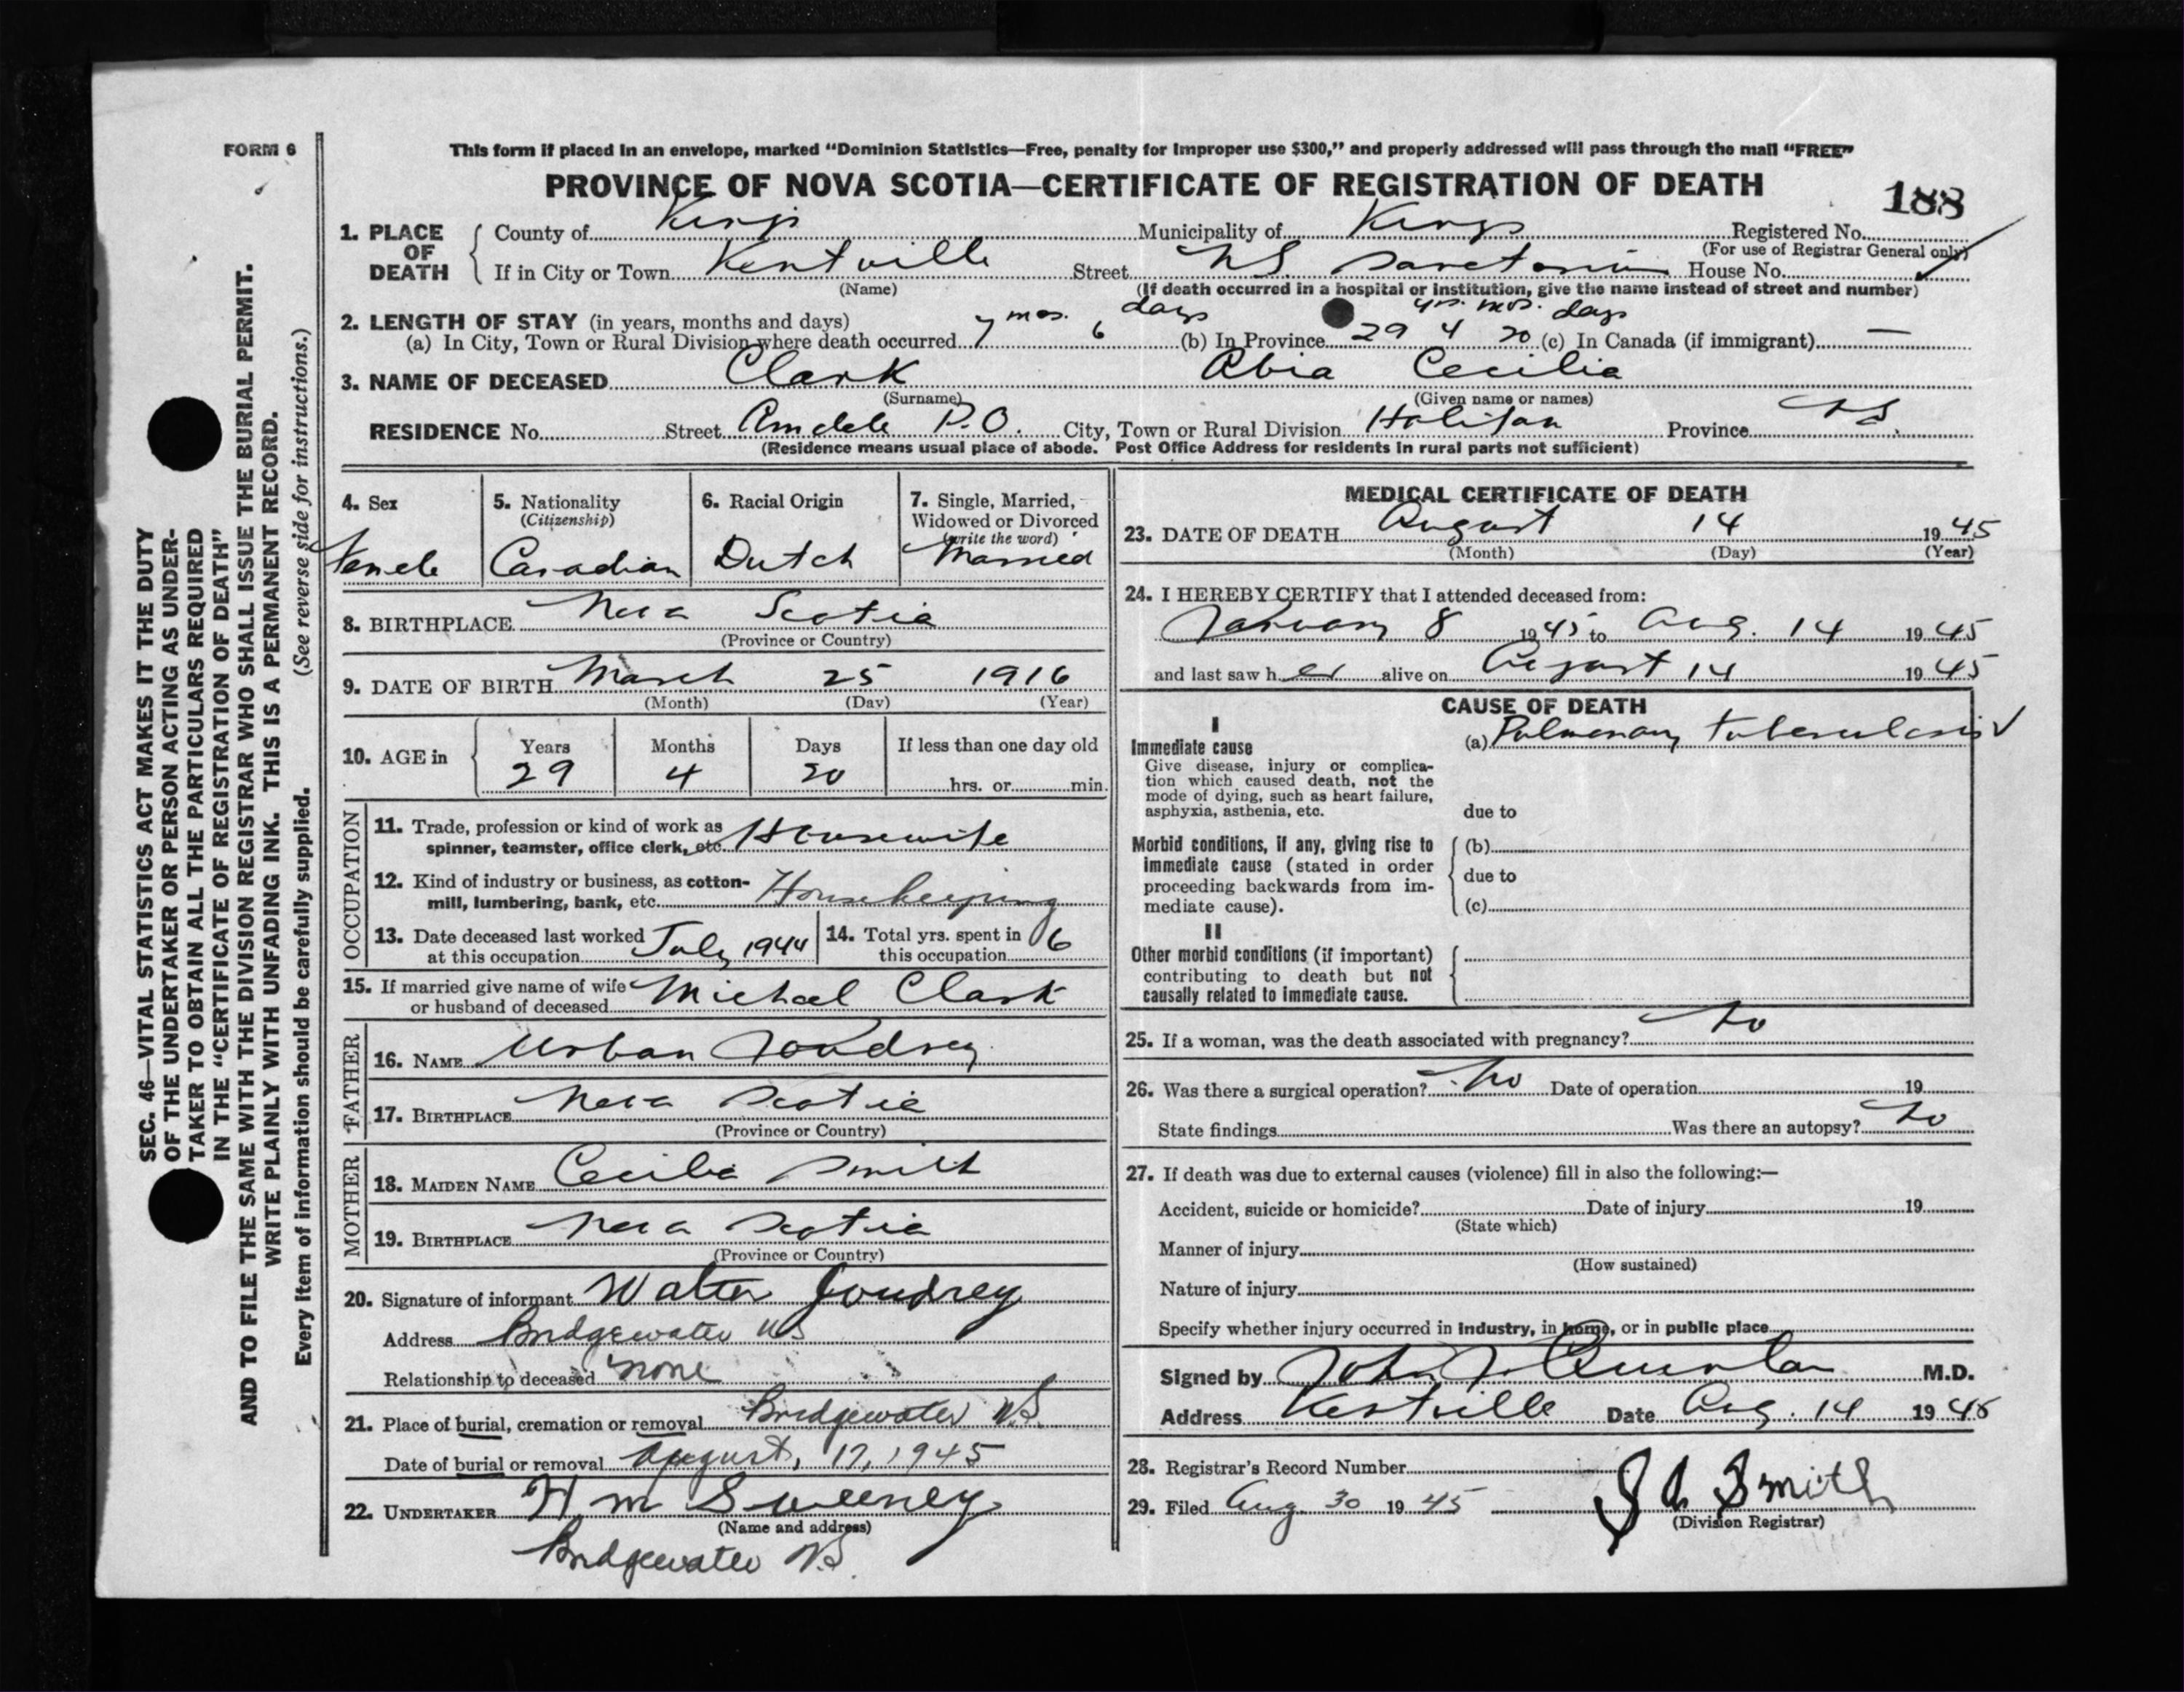 FORM 6
This form if placed in an envelope, marked "Dominion Statistics—Free, penalty for improper use $300," and properly addressed will pass through the mail "FREE"
PROVINCE OF NOVA SCOTIA—CERTIFICATE OF REGISTRATION OF DEATH
188
1. PLACE OF DEATH County of Kings Municipality of Kings Registered No.
(For use of Registrar General only)
If in City or Town Kentville Street N.S. Sanatorium House No.
(Name) (If death occurred in a hospital or institution, give the name instead of street and number)
2. LENGTH OF STAY (in years, months and days) mos. days yrs. mos. days
(a) In City, Town or Rural Division where death occurred 7 6 (b) In Province 29 4 20 (c) In Canada (if immigrant) —
3. NAME OF DECEASED Clark Abia Cecilia
(Surname) (Given name or names)
RESIDENCE No. Street Armdale P.O. City, Town or Rural Division Halifax Province N.S.
(Residence means usual place of abode. Post Office Address for residents in rural parts not sufficient)
4. Sex
Female
5. Nationality
(Citizenship)
Canadian
6. Racial Origin
Dutch
7. Single, Married,
Widowed or Divorced
(write the word)
Married
8. BIRTHPLACE Nova Scotia
(Province or Country)
9. DATE OF BIRTH March 25 1916
(Month) (Day) (Year)
10. AGE in Years Months Days If less than one day old
29 4 20 hrs. or min.
OCCUPATION
11. Trade, profession or kind of work as
spinner, teamster, office clerk, etc. Housewife
12. Kind of industry or business, as cotton-
mill, lumbering, bank, etc. Housekeeping
13. Date deceased last worked
at this occupation July 1944
14. Total yrs. spent in
this occupation 6
15. If married give name of wife
or husband of deceased Michael Clark
FATHER
16. NAME Urban Joudrey
17. BIRTHPLACE Nova Scotia
(Province or Country)
MOTHER
18. MAIDEN NAME Cecilia Smith
19. BIRTHPLACE Nova Scotia
(Province or Country)
20. Signature of informant Walter Joudrey
Address Bridgewater NS
Relationship to deceased none
21. Place of burial, cremation or removal Bridgewater N.S.
Date of burial or removal August, 17, 1945
22. UNDERTAKER H M Sweeney
(Name and address)
Bridgewater N.S.
MEDICAL CERTIFICATE OF DEATH
23. DATE OF DEATH August 14 1945
(Month) (Day) (Year)
24. I HEREBY CERTIFY that I attended deceased from:
January 8 1945 to Aug. 14 1945
and last saw her alive on August 14 1945
CAUSE OF DEATH
I
Immediate cause
Give disease, injury or complica-
tion which caused death, not the
mode of dying, such as heart failure,
asphyxia, asthenia, etc.
(a) Pulmonary tuberculosis
due to
Morbid conditions, if any, giving rise to
immediate cause (stated in order
proceeding backwards from im-
mediate cause).
(b)
due to
(c)
II
Other morbid conditions (if important)
contributing to death but not
causally related to immediate cause.
25. If a woman, was the death associated with pregnancy? No
26. Was there a surgical operation? No Date of operation 19
State findings Was there an autopsy? No
27. If death was due to external causes (violence) fill in also the following:—
Accident, suicide or homicide? Date of injury 19
(State which)
Manner of injury
(How sustained)
Nature of injury
Specify whether injury occurred in industry, in home, or in public place
Signed by John J Quinlan M.D.
Address Kentville Date Aug. 14 1945
28. Registrar's Record Number
29. Filed Aug 30 1945 Smith
(Division Registrar)
SEC. 46—VITAL STATISTICS ACT MAKES IT THE DUTY
OF THE UNDERTAKER OR PERSON ACTING AS UNDER-
TAKER TO OBTAIN ALL THE PARTICULARS REQUIRED
IN THE "CERTIFICATE OF REGISTRATION OF DEATH"
AND TO FILE THE SAME WITH THE DIVISION REGISTRAR WHO SHALL ISSUE THE BURIAL PERMIT.
WRITE PLAINLY WITH UNFADING INK. THIS IS A PERMANENT RECORD.
Every item of information should be carefully supplied. (See reverse side for instructions.)